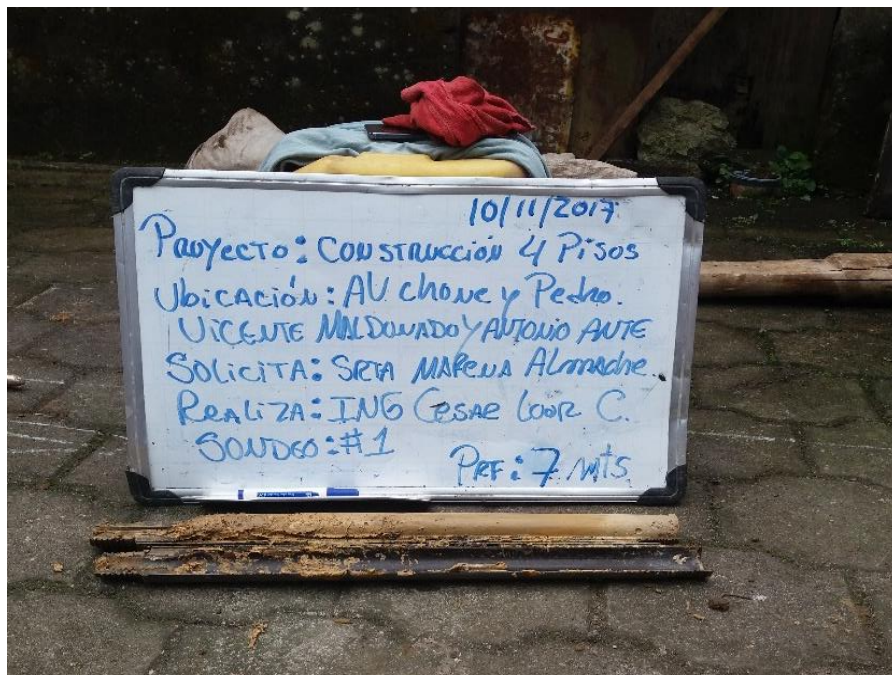 10/11/2017
Proyecto: Construcción 4 Pisos
Ubicación: AV Chone y Pedro.
Vicente Maldonado y Antonio Ante
Solicita: Srta
Realiza: Ing Cesar Loor C.
Sondeo: #1
Prf: 7 mts